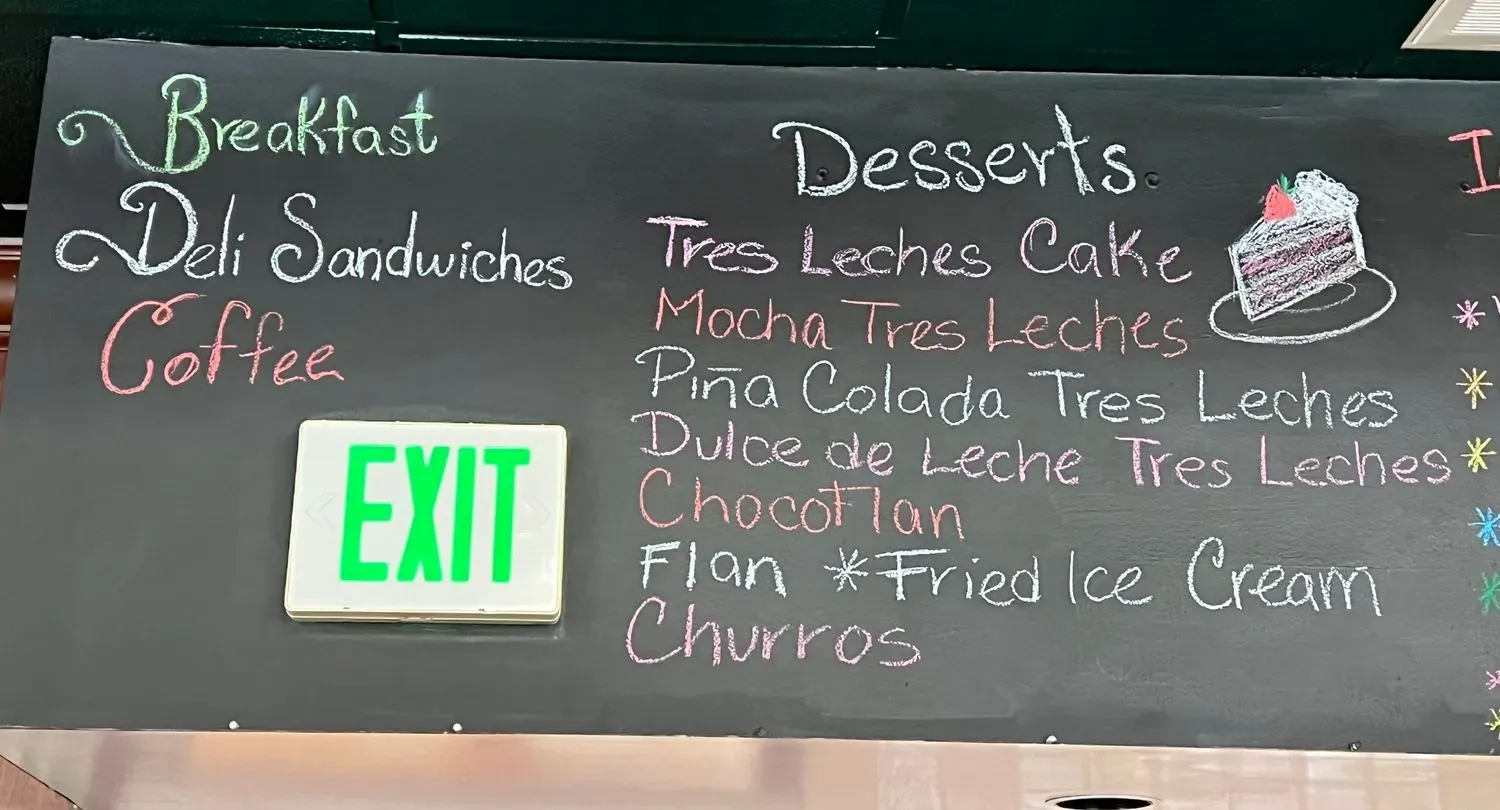 Breakfast
Deli Sandwiches
Coffee
EXIT
Desserts
Tres Leches Cake
Mocha Tres Leches
Piña Colada Tres Leches
Dulce de Leche Tres Leches
Chocoflan
Flan *Fried Ice Cream
Churros